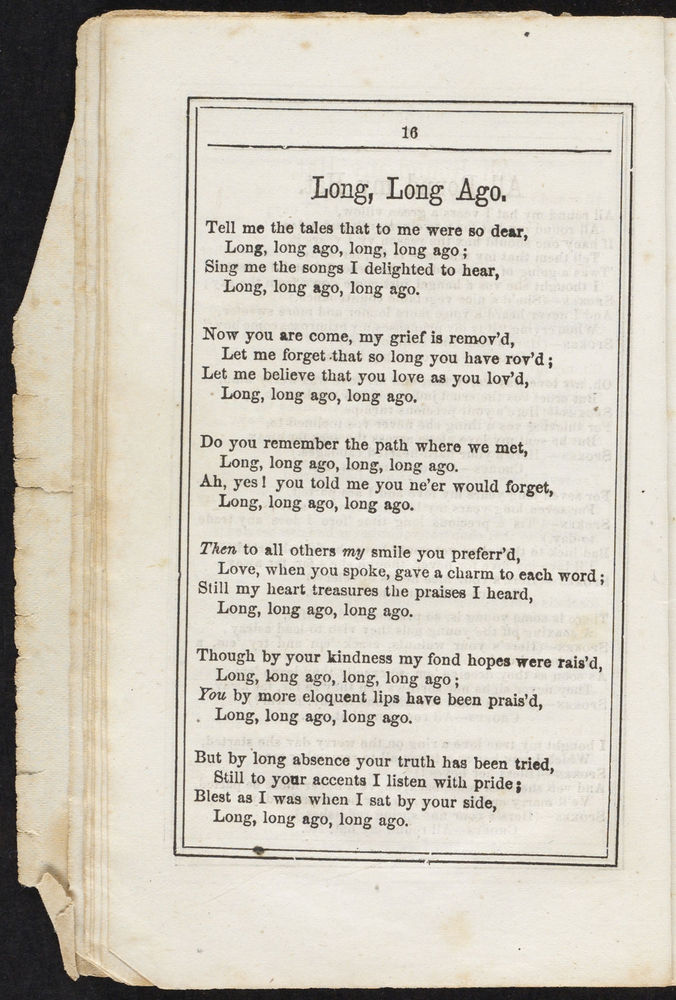 16
Long, Long Ago.
Tell me the tales that to me were so dear,
Long, long ago, long, long ago;
Sing me the songs I delighted to hear,
Long, long ago, long ago.
Now you are come, my grief is remov'd,
Let me forget that so long you have rov'd;
Let me believe that you love as you lov'd,
Long, long ago, long ago.
Do you remember the path where we met,
Long, long ago, long, long ago.
Ah, yes! you told me you ne'er would forget,
Long, long ago, long ago.
Then to all others my smile you preferr'd,
Love, when you spoke, gave a charm to each word;
Still my heart treasures the praises I heard,
Long, long ago, long ago.
Though by your kindness my fond hopes were rais'd,
Long, long ago, long, long ago;
You by more eloquent lips have been prais'd,
Long, long ago, long ago.
But by long absence your truth has been tried,
Still to your accents I listen with pride;
Blest as I was when I sat by your side,
Long, long ago, long ago.